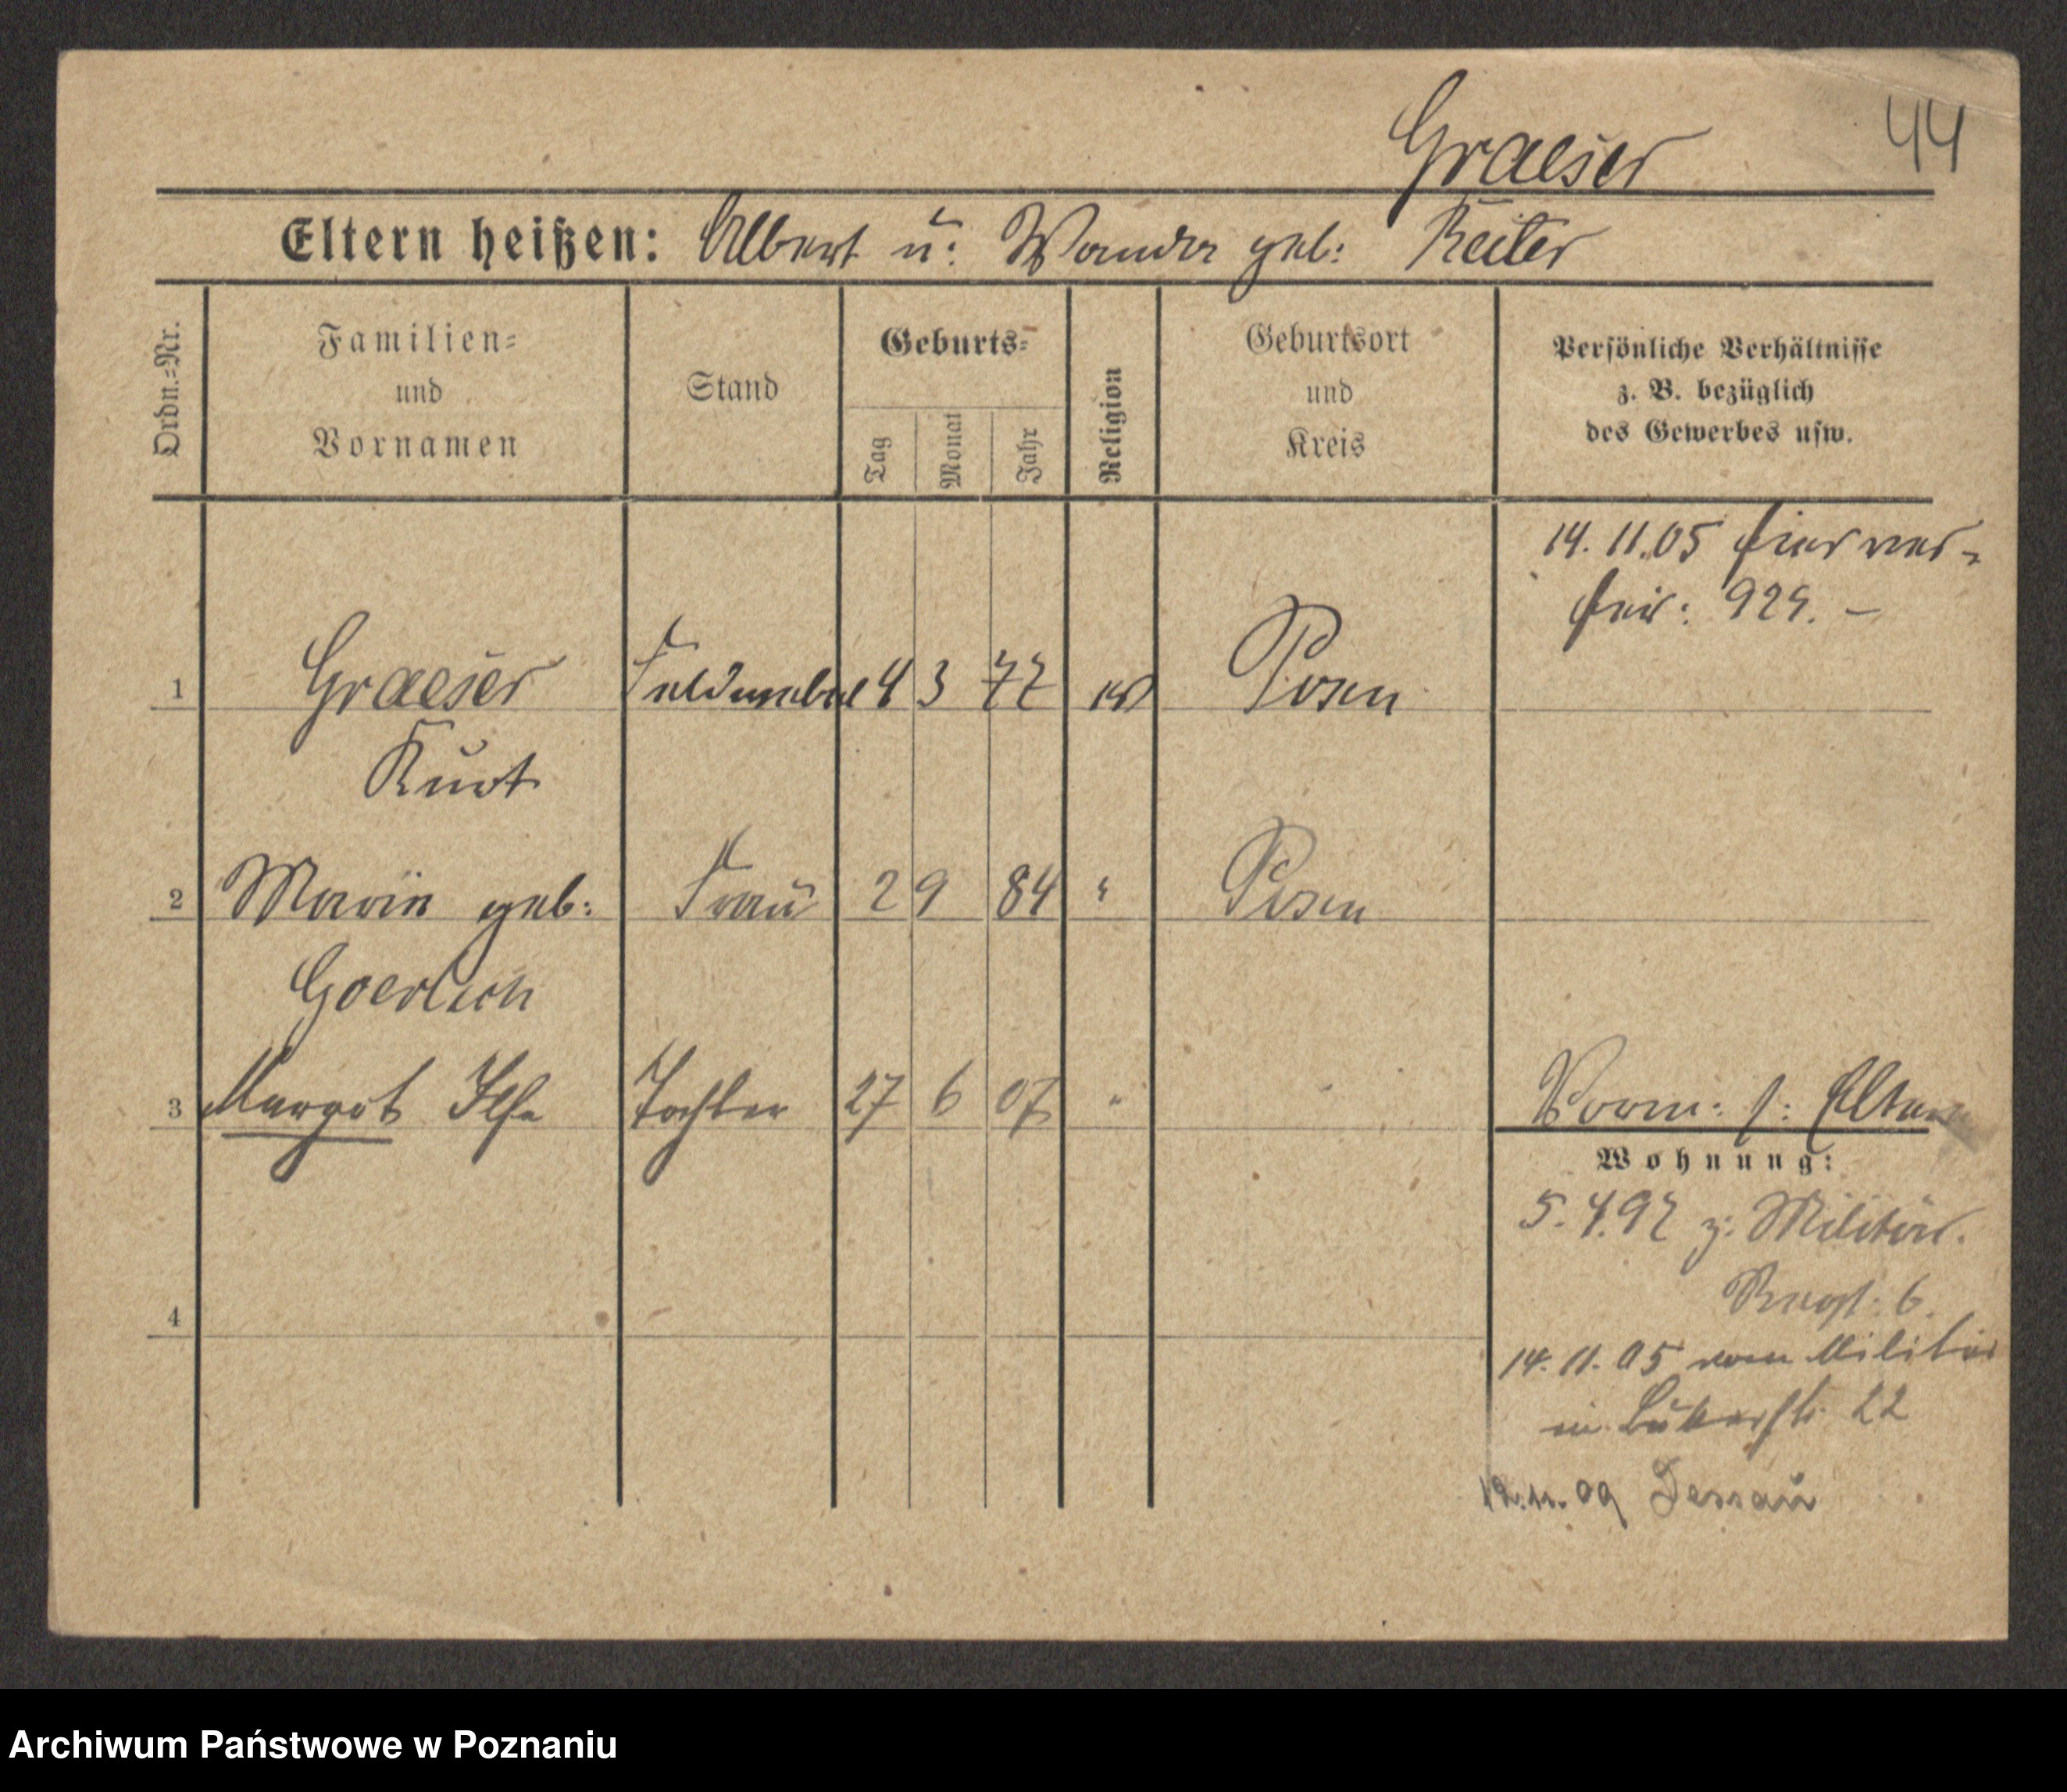 Graeser 44
Eltern heißen: Albert u: Wanda geb: Reiter
Ordn.=Nr.
Familien=
und
Vornamen
Stand
Geburts=
Tag
Monat
Jahr
Religion
Geburtsort
und
Kreis
Persönliche Verhältnisse
z. B. bezüglich
des Gewerbes usw.
14. 11. 05 hier ver=
heir:
1 Graeser Feldwebel 4 3 77 ev Posen
Kurt
2 Marie geb: Frau 2 9 84 " Posen
Goerlich
3 Margot Ilse Tochter 27 6 07 " Vorm: s: Eltern
Wohnung:
5. 4. 97 z: Militär.
Regt: 6.
4
14. 11. 05 vom Militär
in 22
12. 11. 09 Dessau
Archiwum Państwowe w Poznaniu